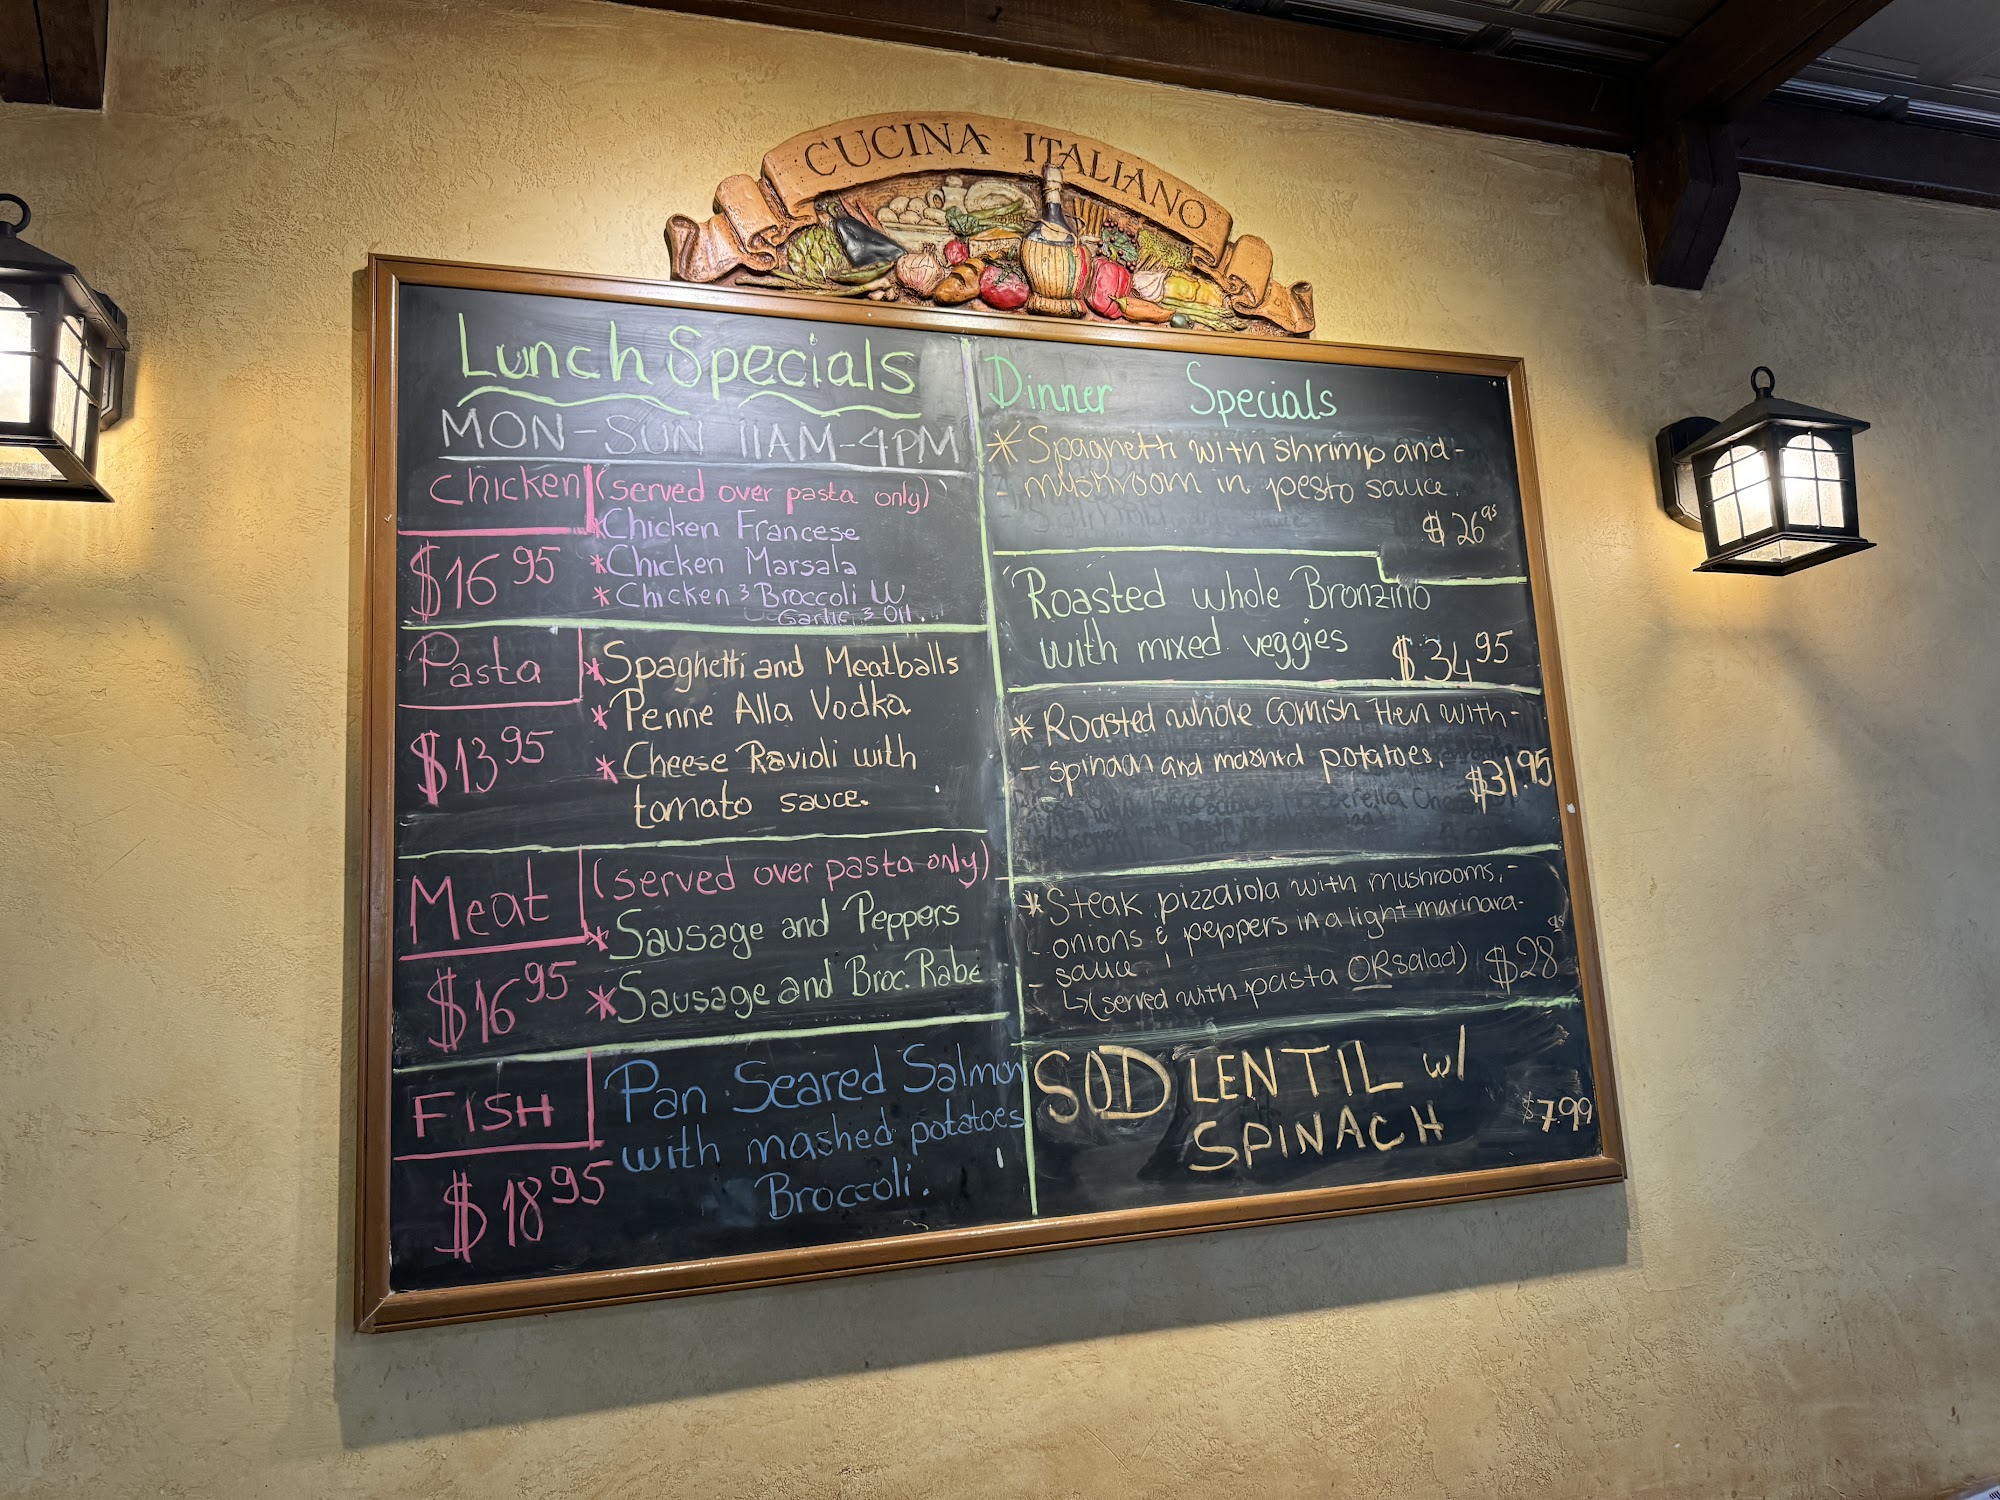 CUCINA ITALIANO
Lunch Specials
MON-SUN 11AM-4PM
Chicken (served over pasta only)
*Chicken Francese
$16.95 *Chicken Marsala
*Chicken & Broccoli W
Garlic & Oil.
Pasta *Spaghetti and Meatballs
*Penne Alla Vodka
$13.95 *Cheese Ravioli with
tomato sauce.
Meat (served over pasta only)
*Sausage and Peppers
$16.95 *Sausage and Broc. Rabe
FISH Pan Seared Salmon
with mashed potatoes
$18.95 Broccoli.
Dinner Specials
*Spaghetti with shrimp and-
- mushroom in pesto sauce.
$26.95
Roasted whole Bronzino
with mixed veggies $34.95
*Roasted whole Cornish Hen with-
- spinach and mashed potatoes.
$31.95
*Steak pizzaiola with mushrooms,-
- onions & peppers in a light marinara-
- sauce.
↳(served with pasta OR salad) $28.95
SOD LENTIL w/
SPINACH $7.99